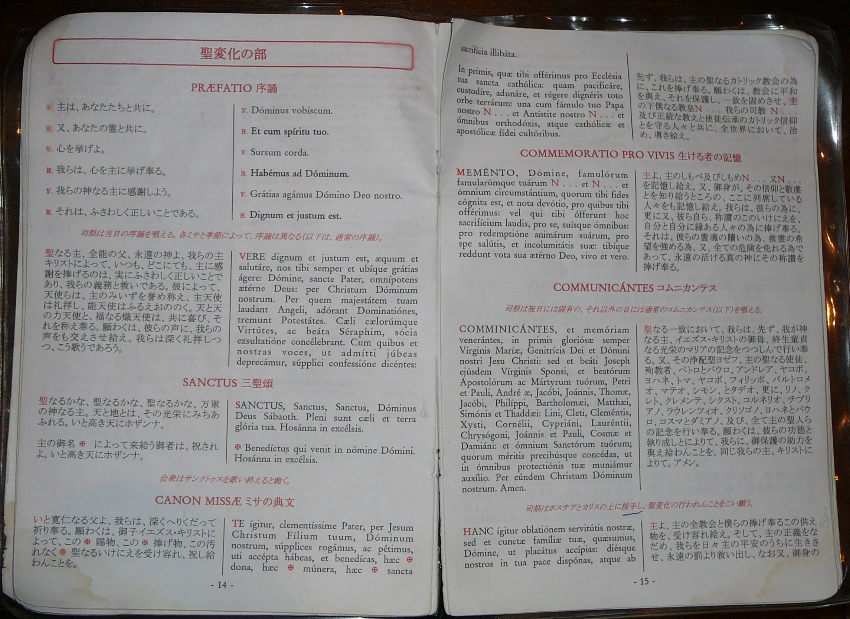 聖変化の部
PRÆFATIO 序誦
V. 主は、あなたたちと共に。
R. 又、あなたの霊と共に。
V. 心を挙げよ。
R. 我らは、心を主に挙げ奉る。
V. 我らの神なる主に感謝しよう。
R. それは、ふさわしく正しいことである。
V. Dóminus vobíscum.
R. Et cum spíritu tuo.
V. Sursum corda.
R. Habémus ad Dóminum.
V. Grátias agámus Dómino Deo nostro.
R. Dignum et justum est.
司祭は当日の序誦を唱える。各ミサと季節によって、序誦は異なる(以下は、通常の序誦)。
聖なる主、全能の父、永遠の神よ、我らの主
キリストによって、いつも、どこにても、主に感
謝を捧げるのは、実にふさわしく正しいことで
あり、我らの義務と救いである。彼によって、
天使らは、主のみいずを誉め称え、主天使
は礼拝し、能天使はふるえおののく。天と天
の力天使と、福なる熾天使は、共に喜び、そ
れを称え奉る。願わくは、彼らの声に、我らの
声をも交えさせ給え。我らは深く礼拝しつ
つ、こう歌うであろう。
VERE dignum et justum est, æquum et
salutáre, nos tibi semper et ubíque grátias
ágere: Dómine, sancte Pater, omnípotens
ætérne Deus: per Christum Dóminum
nostrum. Per quem majestátem tuam
laudant Angeli, adórant Dominatiónes,
tremunt Potestátes. Cæli cælorúmque
Virtútes, ac beáta Séraphim, sócia
exsultatióne concélebrant. Cum quibus et
nostras voces, ut admítti júbeas
deprecámur, súpplici confessióne dicéntes:
SANCTUS 三聖頌
聖なるかな、聖なるかな、聖なるかな、万軍
の神なる主。天と地とは、その光栄にみちあ
ふれる。いと高き天にホザンナ。
主の御名 ✠ によって来給う御者は、祝され
よ。いと高き天にホザンナ。
SANCTUS, Sanctus, Sanctus, Dóminus
Deus Sábaoth. Pleni sunt cæli et terra
glória tua. Hosánna in excélsis.
✠ Benedíctus qui venit in nómine Dómini.
Hosánna in excélsis.
会衆はサンクトゥスを歌い終えると跪く。
CANON MISSÆ ミサの典文
いと寛仁なる父よ、我らは、深くへりくだって
祈り奉る。願わくは、御子イエズス・キリストに
よって、この ✠ 賜物、この ✠ 捧げ物、この汚
れなく ✠ 聖なるいけにえを受け容れ、祝し給
わんことを。
TE ígitur, clementíssime Pater, per Jesum
Christum Fílium tuum, Dóminum
nostrum, súpplices rogámus, ac pétimus,
uti accépta hábeas, et benedícas, hæc ✠
dona, hæc ✠ múnera, hæc ✠ sancta
- 14 -
sacrifícia illibáta.
In primis, quæ tibi offérimus pro Ecclésia
tua sancta cathólica: quam pacificáre,
custodíre, adunáre, et régere dignéris toto
orbe terrárum: una cum fámulo tuo Papa
nostro N . . . et Antístite nostro N . . . et
ómnibus orthodóxis, atque cathólicæ et
apostólicæ fídei cultóribus.
先ず、我らは、主の聖なるカトリック教会の為
に、これを捧げ奉る。願わくは、教会に平和
を與え、それを保護し、一致を固めさせ、主
の下僕なる教皇N . . . 我らの司教 N . . .
及び正統な教えと使徒伝承のカトリック信仰
とを守る人々と共に、全世界において、治
め、導き給え。
COMMEMORATIO PRO VIVIS 生ける者の記憶
MEMÉNTO, Dómine, famulórum
famularúmque tuárum N . . . et N . . . et
ómnium circumstántium, quorum tibi fides
cógnita est, et nota devótio, pro quibus tibi
offérimus: vel qui tibi ófferunt hoc
sacrifícium laudis, pro se, suísque ómnibus
pro redemptióne animárum suárum, pro
spe salútis, et incolumitátis suæ: tibíque
reddunt vota sua ætérno Deo, vivo et vero.
主よ、主のしもべ及びしもめN . . . 又N . . .
を記憶し給え。又、御身が、その信仰と敬虔
とを知り給うところの、ここに列席している
人々をも記憶し給え。我らは、彼らの為に、
更に又、彼ら自ら、称讃のこのいけにえを、
自分と自分に縁ある人々の為に捧げ奉る。
それは、彼らの霊魂の贖いの為、救霊の希
望を強める為、又、全ての危険を免れる為で
あって、永遠の活ける真の神にその称讃を
捧げ奉る。
COMMUNICÁNTES コムニカンテス
司祭は祝日には固有の、それ以外の日には通常のコムニカンテス(以下)を唱える。
COMMINICÁNTES, et memóriam
venerántes, in primis gloriósæ semper
Vírginis Maríæ, Genitrícis Dei et Dómini
nostri Jesu Christi: sed et beáti Joseph
ejúsdem Vírginis Sponsi, et beatórum
Apostolórum ac Mártyrum tuórum, Petri
et Pauli, André æ, Jacóbi, Joánnis, Thomæ,
Jacóbi, Philíppi, Bartholomǽi, Matthǽi,
Simónis et Thaddǽi: Lini, Cleti, Cleméntis,
Xysti, Cornélii, Cypriáni, Lauréntii,
Chrysógoni, Joánnis et Pauli, Cosmæ et
Damiáni: et ómnium Sanctórum tuórum;
quorum méritis precibúsque concédas, ut
in ómnibus protectiónis tuæ muniámur
auxílio. Per eúndem Christum Dóminum
nostrum. Amen.
聖なる一致において、我らは、先ず、我が神
なる主、イエズス・キリストの御母、終生童貞
なる光栄のマリアの記念をつつしんで行い奉
る。又、その浄配聖ヨゼフ、主の聖なる使徒、
殉教者、ペトロとパウロ、アンドレア、ヤコボ、
ヨハネ、トマ、ヤコボ、フィリッポ、バルトロメ
オ、マテオ、シモン、とタデオ、更に、リノ、ク
レト、クレメンテ、シクスト、コルネリオ、チプリ
アノ、ラウレンツィオ、クリソゴノ、ヨハネとパウ
ロ、コスマとダミアノ、及び、全て主の聖人ら
の記念を行い奉る。願わくは、彼らの功徳と
執り成しとによりて、我らに、御保護の助力を
與え給わんことを。同じ我らの主、キリストに
よりて。アメン。
司祭はホスチアとカリスの上に按手し、聖変化の行われんことをこい願う。
HANC ígitur oblatiónem servitútis nostræ,
sed et cunctæ famíliæ tuæ, quǽsumus,
Dómine, ut placátus accípias: diésque
nostros in tua pace dispónas, atque ab
主よ、主の全教会と僕らの捧げ奉るこの供え
物を、受け容れ給え。そして、主の正義をな
だめ、我らを日々主の平安のうちに生きさ
せ、永遠の罰より救い出し、なお又、御身の
- 15 -